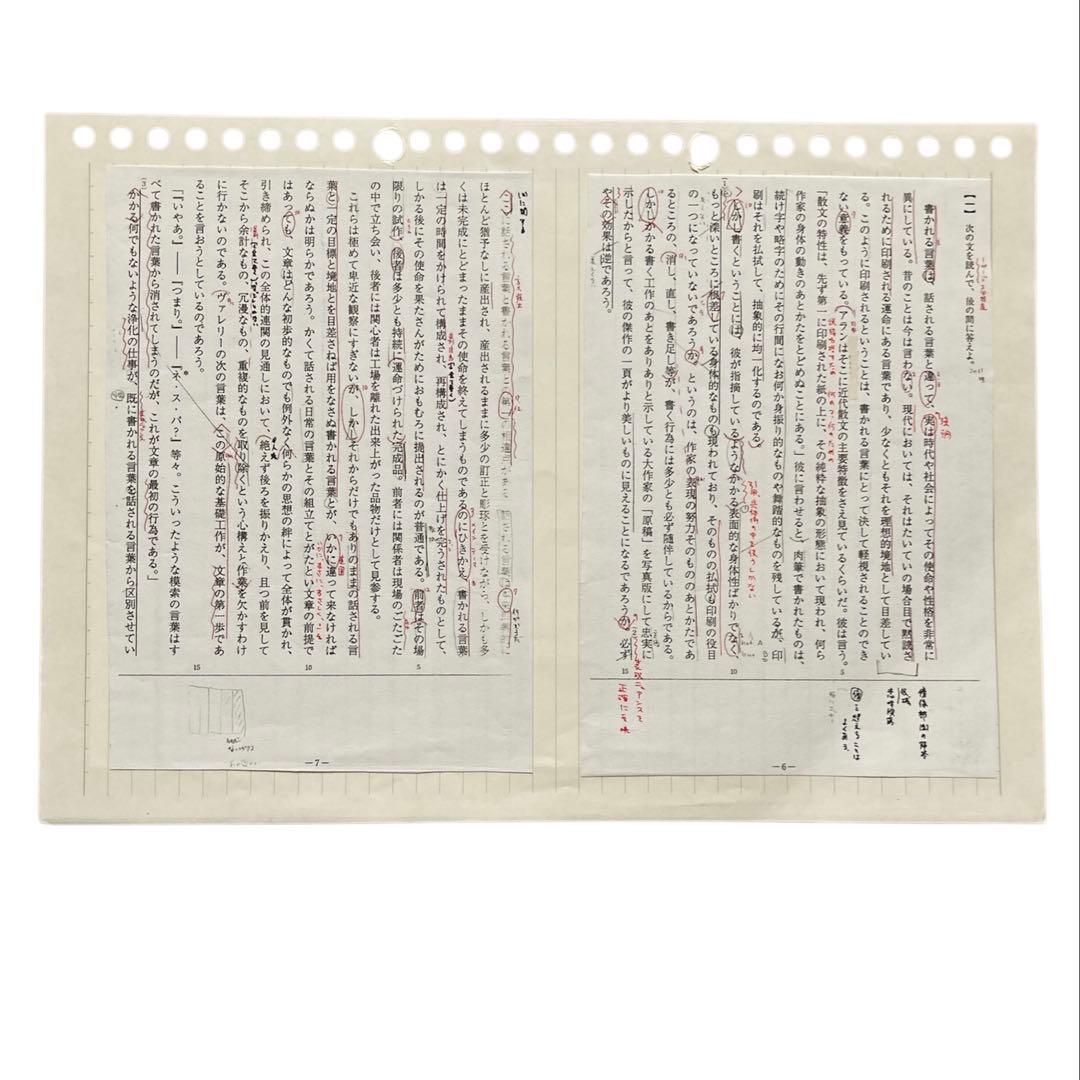 【一】 次の文を読んで、後の問に答えよ。
書かれる言葉は、話される言葉と違って、実は時代や社会によってその使命や性格を非常に
異にしている。昔のことは今は言わない。現代においては、それはたいていの場合目で黙読さ
れるために印刷される運命にある言葉であり、少なくともそれを理想的境地として目差してい
る。このように印刷されるということは、書かれる言葉にとって決して軽視されることのでき
ない意義をもっている。アランはそこに近代散文の主要特徴をさえ見ているくらいだ。彼は言う。
「散文の特性は、先ず第一に印刷された紙の上に、その純粋な抽象の形態において現われ、何ら
作家の身体の動きのあとかたをとどめぬことにある。」彼に言わせると、肉筆で書かれたものは、
続け字や略字のためにその行間になお何か身振り的なものや舞踏的なものを残しているが、印
刷はそれを払拭して、抽象的に均一化するのである。
しかし書くということには、彼が指摘しているようなかかる表面的な身体性ばかりでなく、
もっと深いところに根差している身体的なものも現われており、そのものの払拭も印刷の役目
の一つになっていないであろうか。というのは、作家の表現の努力そのもののあとかたであ
るところの、消し、直し、書き足し等が、書く行為には多少とも必ず随伴しているからである。
しかしかかる書く工作のあとをありありと示している大作家の「原稿」を写真版にして忠実に
示したからと言って、彼の傑作の一頁がより美しいものに見えることになるであろうか。必ず
やその効果は逆であろう。
表現ニュアンスを
正確に反映
15
10
5
―6―
に話される言葉と書かれる言葉との第一の相違点がある。話される言葉は
ほとんど猶予なしに産出され、産出されるままに多少の訂正と彫琢を受けながら、しかも多
くは未完成にとどまったままその使命を終えてしまうものであるのにひきかえ、書かれる言葉
は一定の時間をかけられて構成され、再構成され、とにかく仕上げを完うされたものとして、
しかる後にその使命を果たさんがためにおもむろに提出されるのが普通である。前者はその場
限りの試作、後者は多少とも持続に運命づけられた完成品。前者には関係者は現場のごたごた
の中で立ち会い、後者には関心者は工場を離れた出来上がった品物だけとして見参する。
これらは極めて卑近な観察にすぎないが、しかしそれからだけでもありのままの話される言
葉と一定の目標と境地とを目差さねば用をなさぬ書かれる言葉とが、いかに違って来なければ
ならぬかは明らかであろう。かくて話される日常の言葉とその組立てとがたとい文章の前提で
はあっても、文章はどんな初歩的なものでも例外なく何らかの思想の絆によって全体が貫かれ、
引き締められ、この全体的連関の見通しにおいて、絶えず後ろを振りかえり、且つ前を見して
そこから余計なもの、冗漫なもの、重複的なものを取り除くという心構えと作業を欠かすわけ
に行かないのである。ヴァレリーの次の言葉は、この原始的な基礎工作が、文章の第一歩であ
ることを言おうとしているのであろう。
「『いやあ。』――『つまり。』――『ネ・ス・パ？』等々。こういったような模索の言葉はす
べて書かれた言葉から消されてしまうのだが、これが文章の最初の行為である。」
かかる何でもないような浄化の仕事が、既に書かれる言葉を話される言葉から区別させてい
15
10
5
―7―